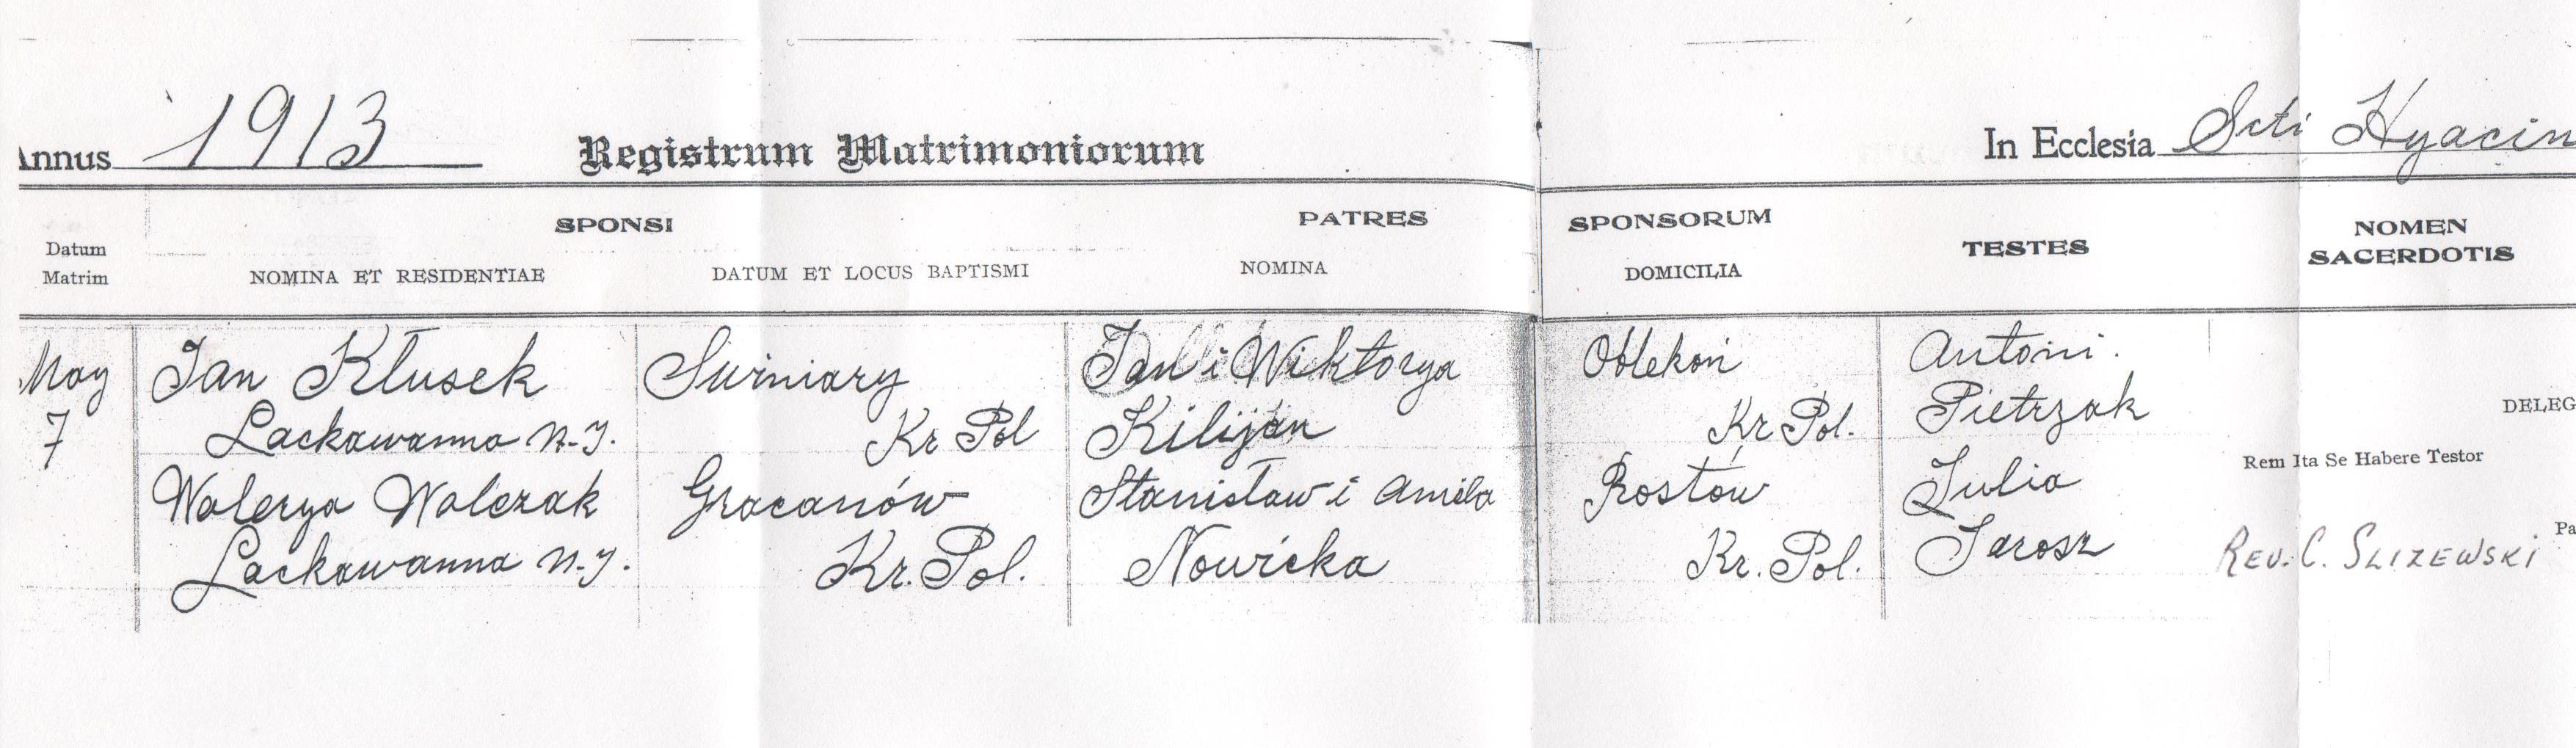 Annus 1913 Registrum Matrimoniorum In Ecclesia Scti Hyacin
SPONSI PATRES SPONSORUM TESTES NOMEN SACERDOTIS
Datum Matrim NOMINA ET RESIDENTIAE DATUM ET LOCUS BAPTISMI NOMINA DOMICILIA
May Jan Kłusek Swiniary Jan i Wiktorya Oblekoń Antoni
7 Lackawanna N.Y. Kr Pol Kilijan Kr Pol. Pietrzak DELEG
Walerya Walczak Gracanów Stanisław i Aniela Rostów Julia Rem Ita Se Habere Testor
Lackawanna N.Y. Kr. Pol. Nowicka Kr. Pol. Jarosz REV. C. SLIZEWSKI Pa